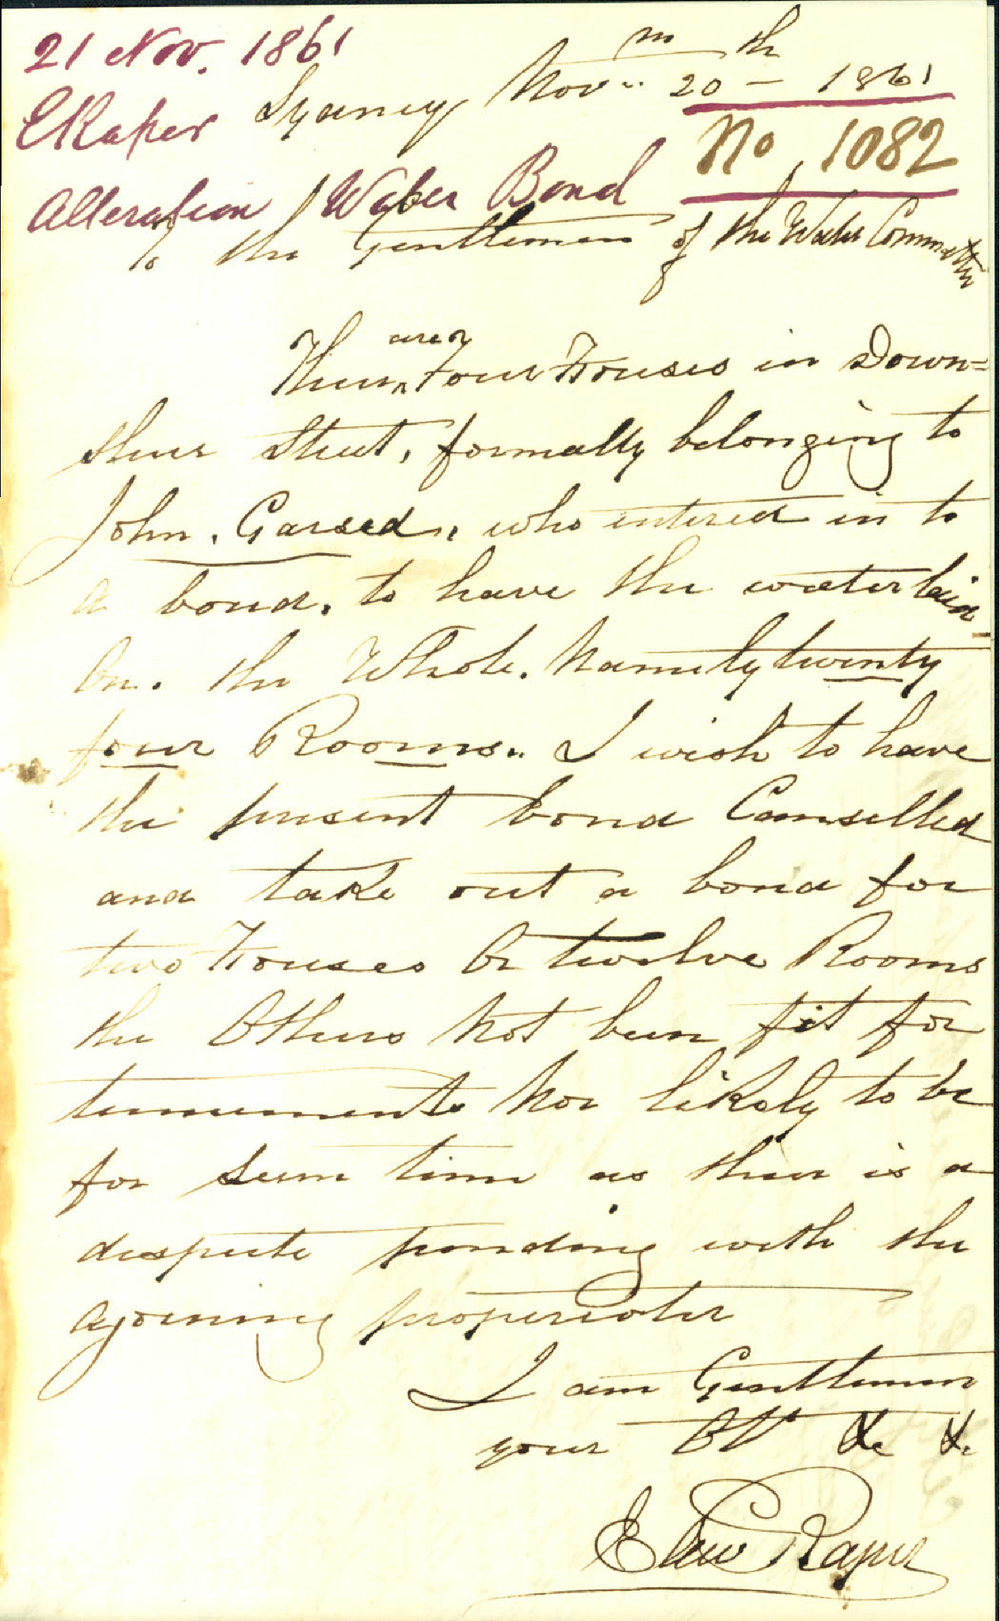 21 Nov. 1861
Sydney Novm 20th 1861
E Raper
No 1082
Alteration Water Bond
To the Gentlemen of the Water Committee
Their are Four Houses in Down=
shur Street, formally belonging to
John. Garsed, who entered in to
a bond. to have the water laid
On. the Whole. Namely twenty
four Rooms.. I wish to have
the present bond Canselled
and take out a bond for
two Houses Or twelve Rooms
the Others Not been fit for
tennements Nor likely to be
for sum time as their is a
despute pending with the
ajoining properiater
I am Gentlemen
your Ob' &c &c
Edw Raper